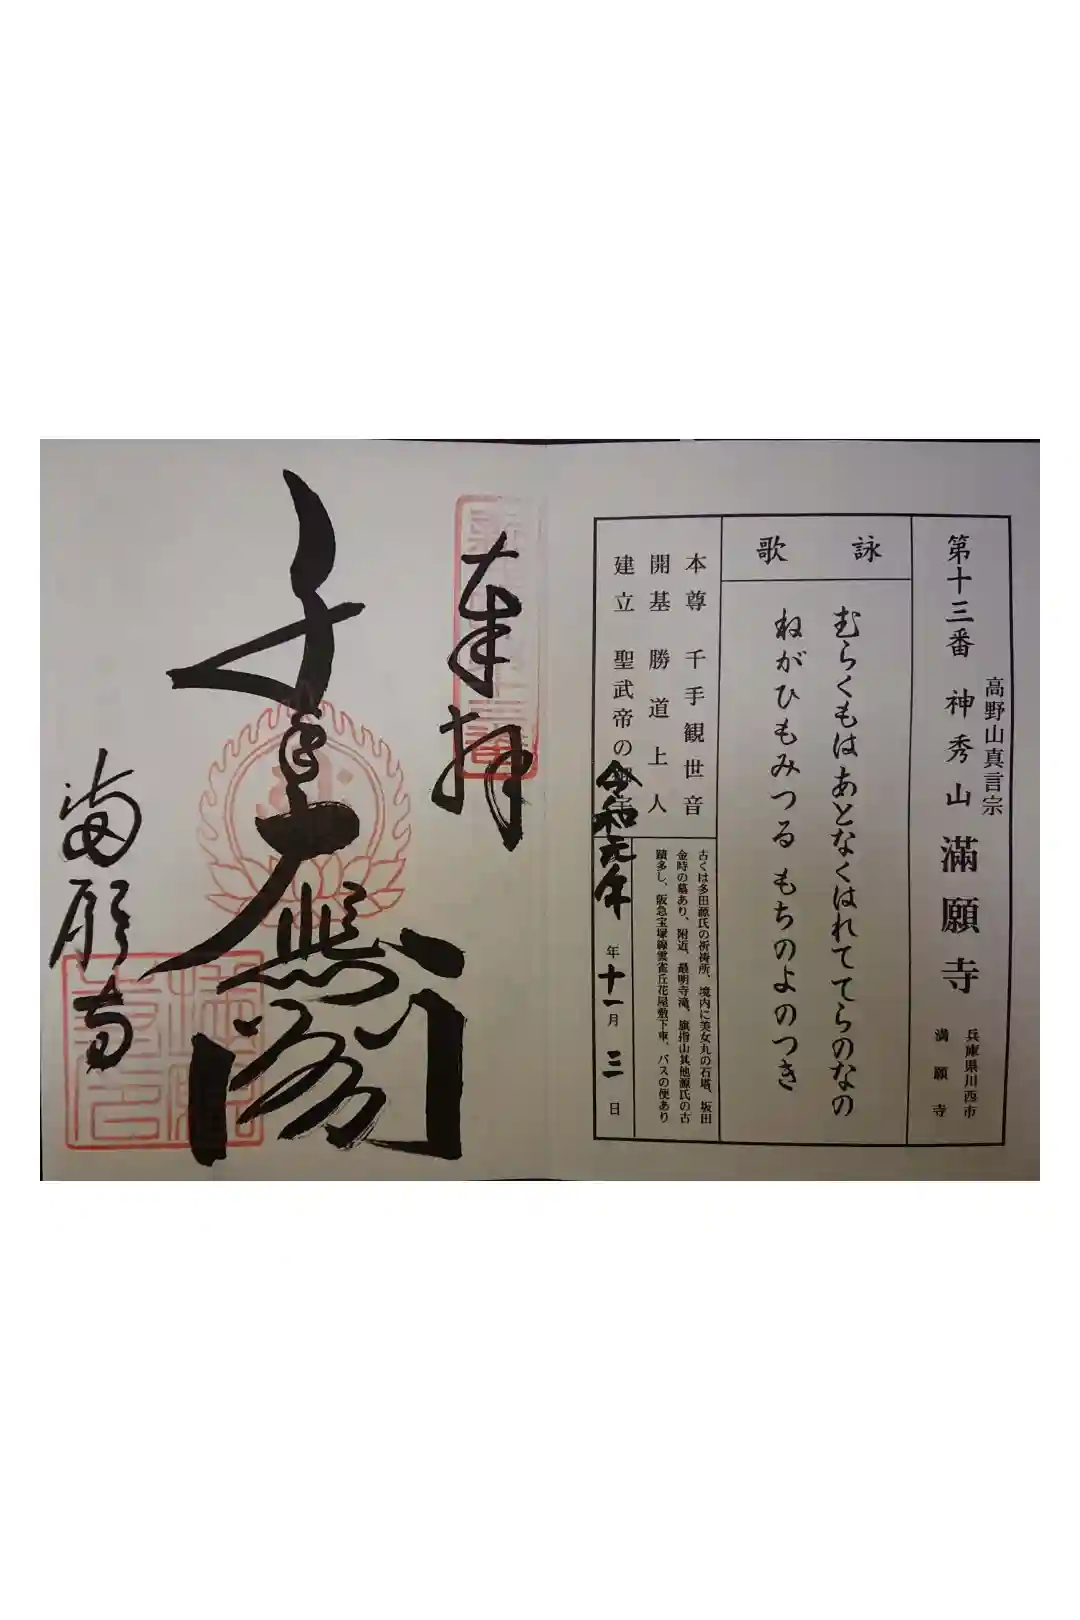 第十三番 神秀山 滿願寺
高野山真言宗
兵庫県川西市
満願寺
詠歌
むらくもは あとなくはれて てらのなの
ねがひもみつる もちのよのつき
本尊 千手観世音
開基 勝道上人
建立 聖武帝の
古くは多田源氏の祈祷所、境内に美女丸の石塔、坂田
金時の墓あり、附近、最明寺滝、旗指山其他源氏の古
蹟多し、阪急宝塚線雲雀丘花屋敷下車、バスの便あり
令和元年 年 十一月 三 日
奉拝
満願寺